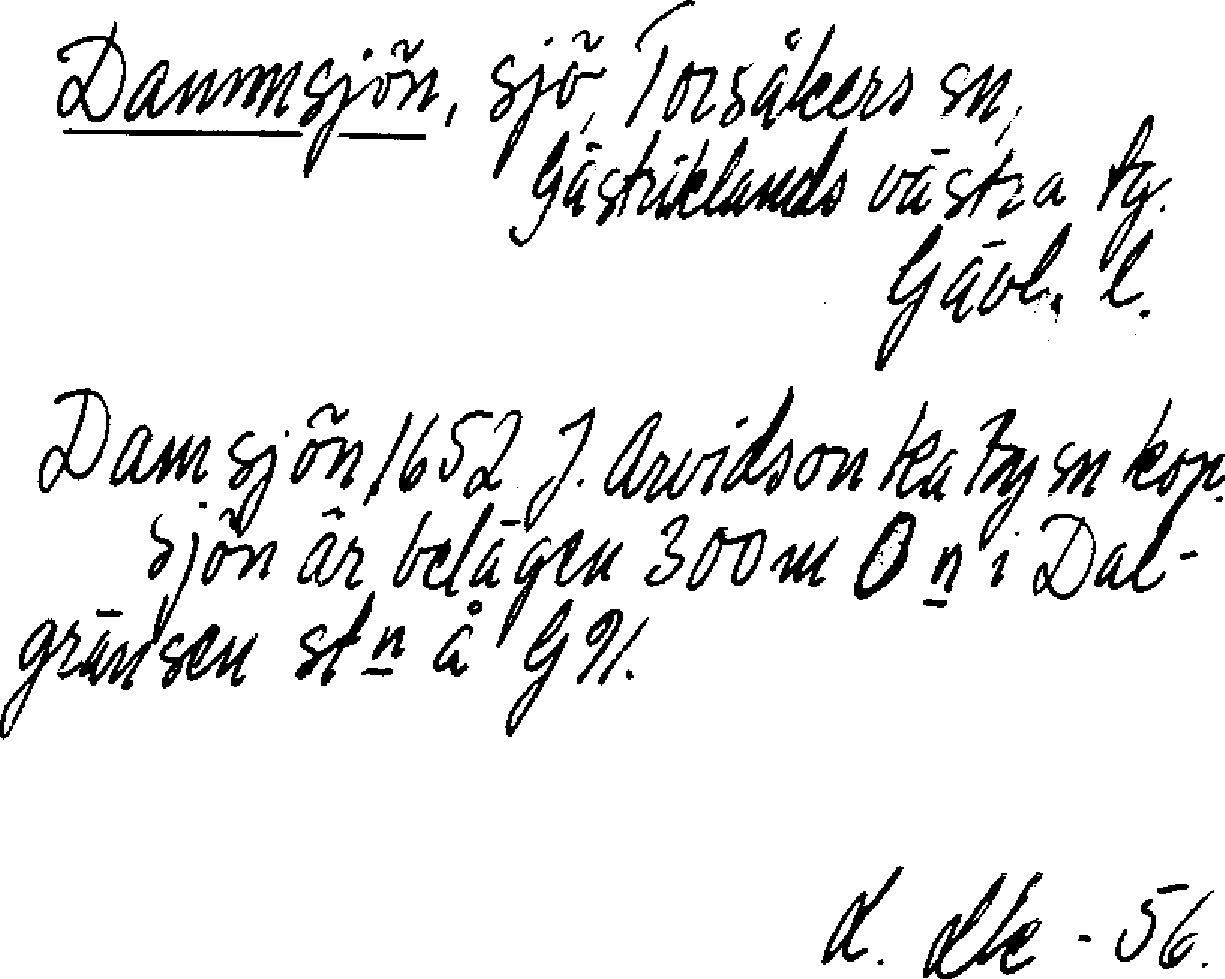 Dammsjön, sjö, Torsåkers sn,
Gästriklands västra tg.
Gävl. l.
Damsjön 1652 J. Arvidson ka By sn kop.
Sjön är belägen 300 m O n i Dal-
gränsen st n å G 91.
- 56.